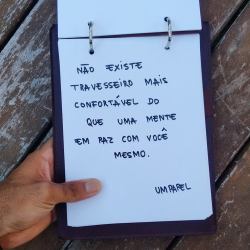 NÃO EXISTE
TRAVESSEIRO MAIS
CONFORTÁVEL DO
QUE UMA MENTE
EM PAZ COM VOCÊ
MESMO.
UMPAPEL